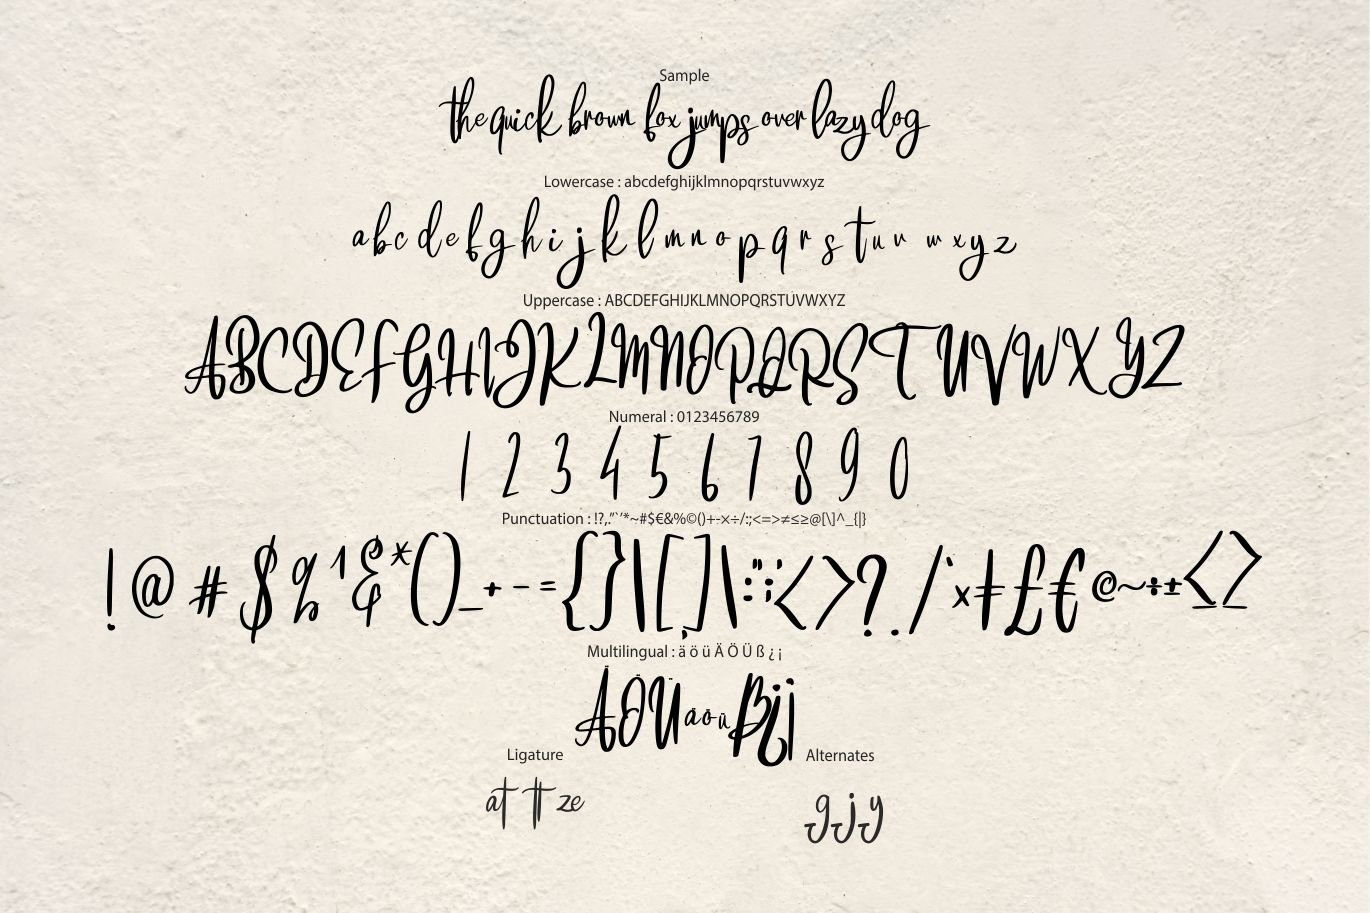 Sample
the quick brown fox jumps over lazy dog
Lowercase : abcdefghijklmnopqrstuvwxyz
a b c d e f g h i j k l m n o p q r s t u v w x y z
Uppercase : ABCDEFGHIJKLMNOPQRSTUVWXYZ
A B C D E F G H I J K L M N O P Q R S T U V W X Y Z
Numeral : 0123456789
1 2 3 4 5 6 7 8 9 0
Punctuation : !?,.”`’*~#$€&%©()+-×÷/:;<=>≠≤≥@[\]^_{|}
! @ # $ % ^ & * ( ) _ + - = { } | [ ] \ : " ; ' < > ? , . / ` × ‡ £ € © ~ ÷ ± ≤ ≥
Multilingual : ä ö ü Ä Ö Ü ß ¿ ¡
Ä Ö Ü ä ö ü ß ¿ ¡
Ligature
at tt ze
Alternates
g j y